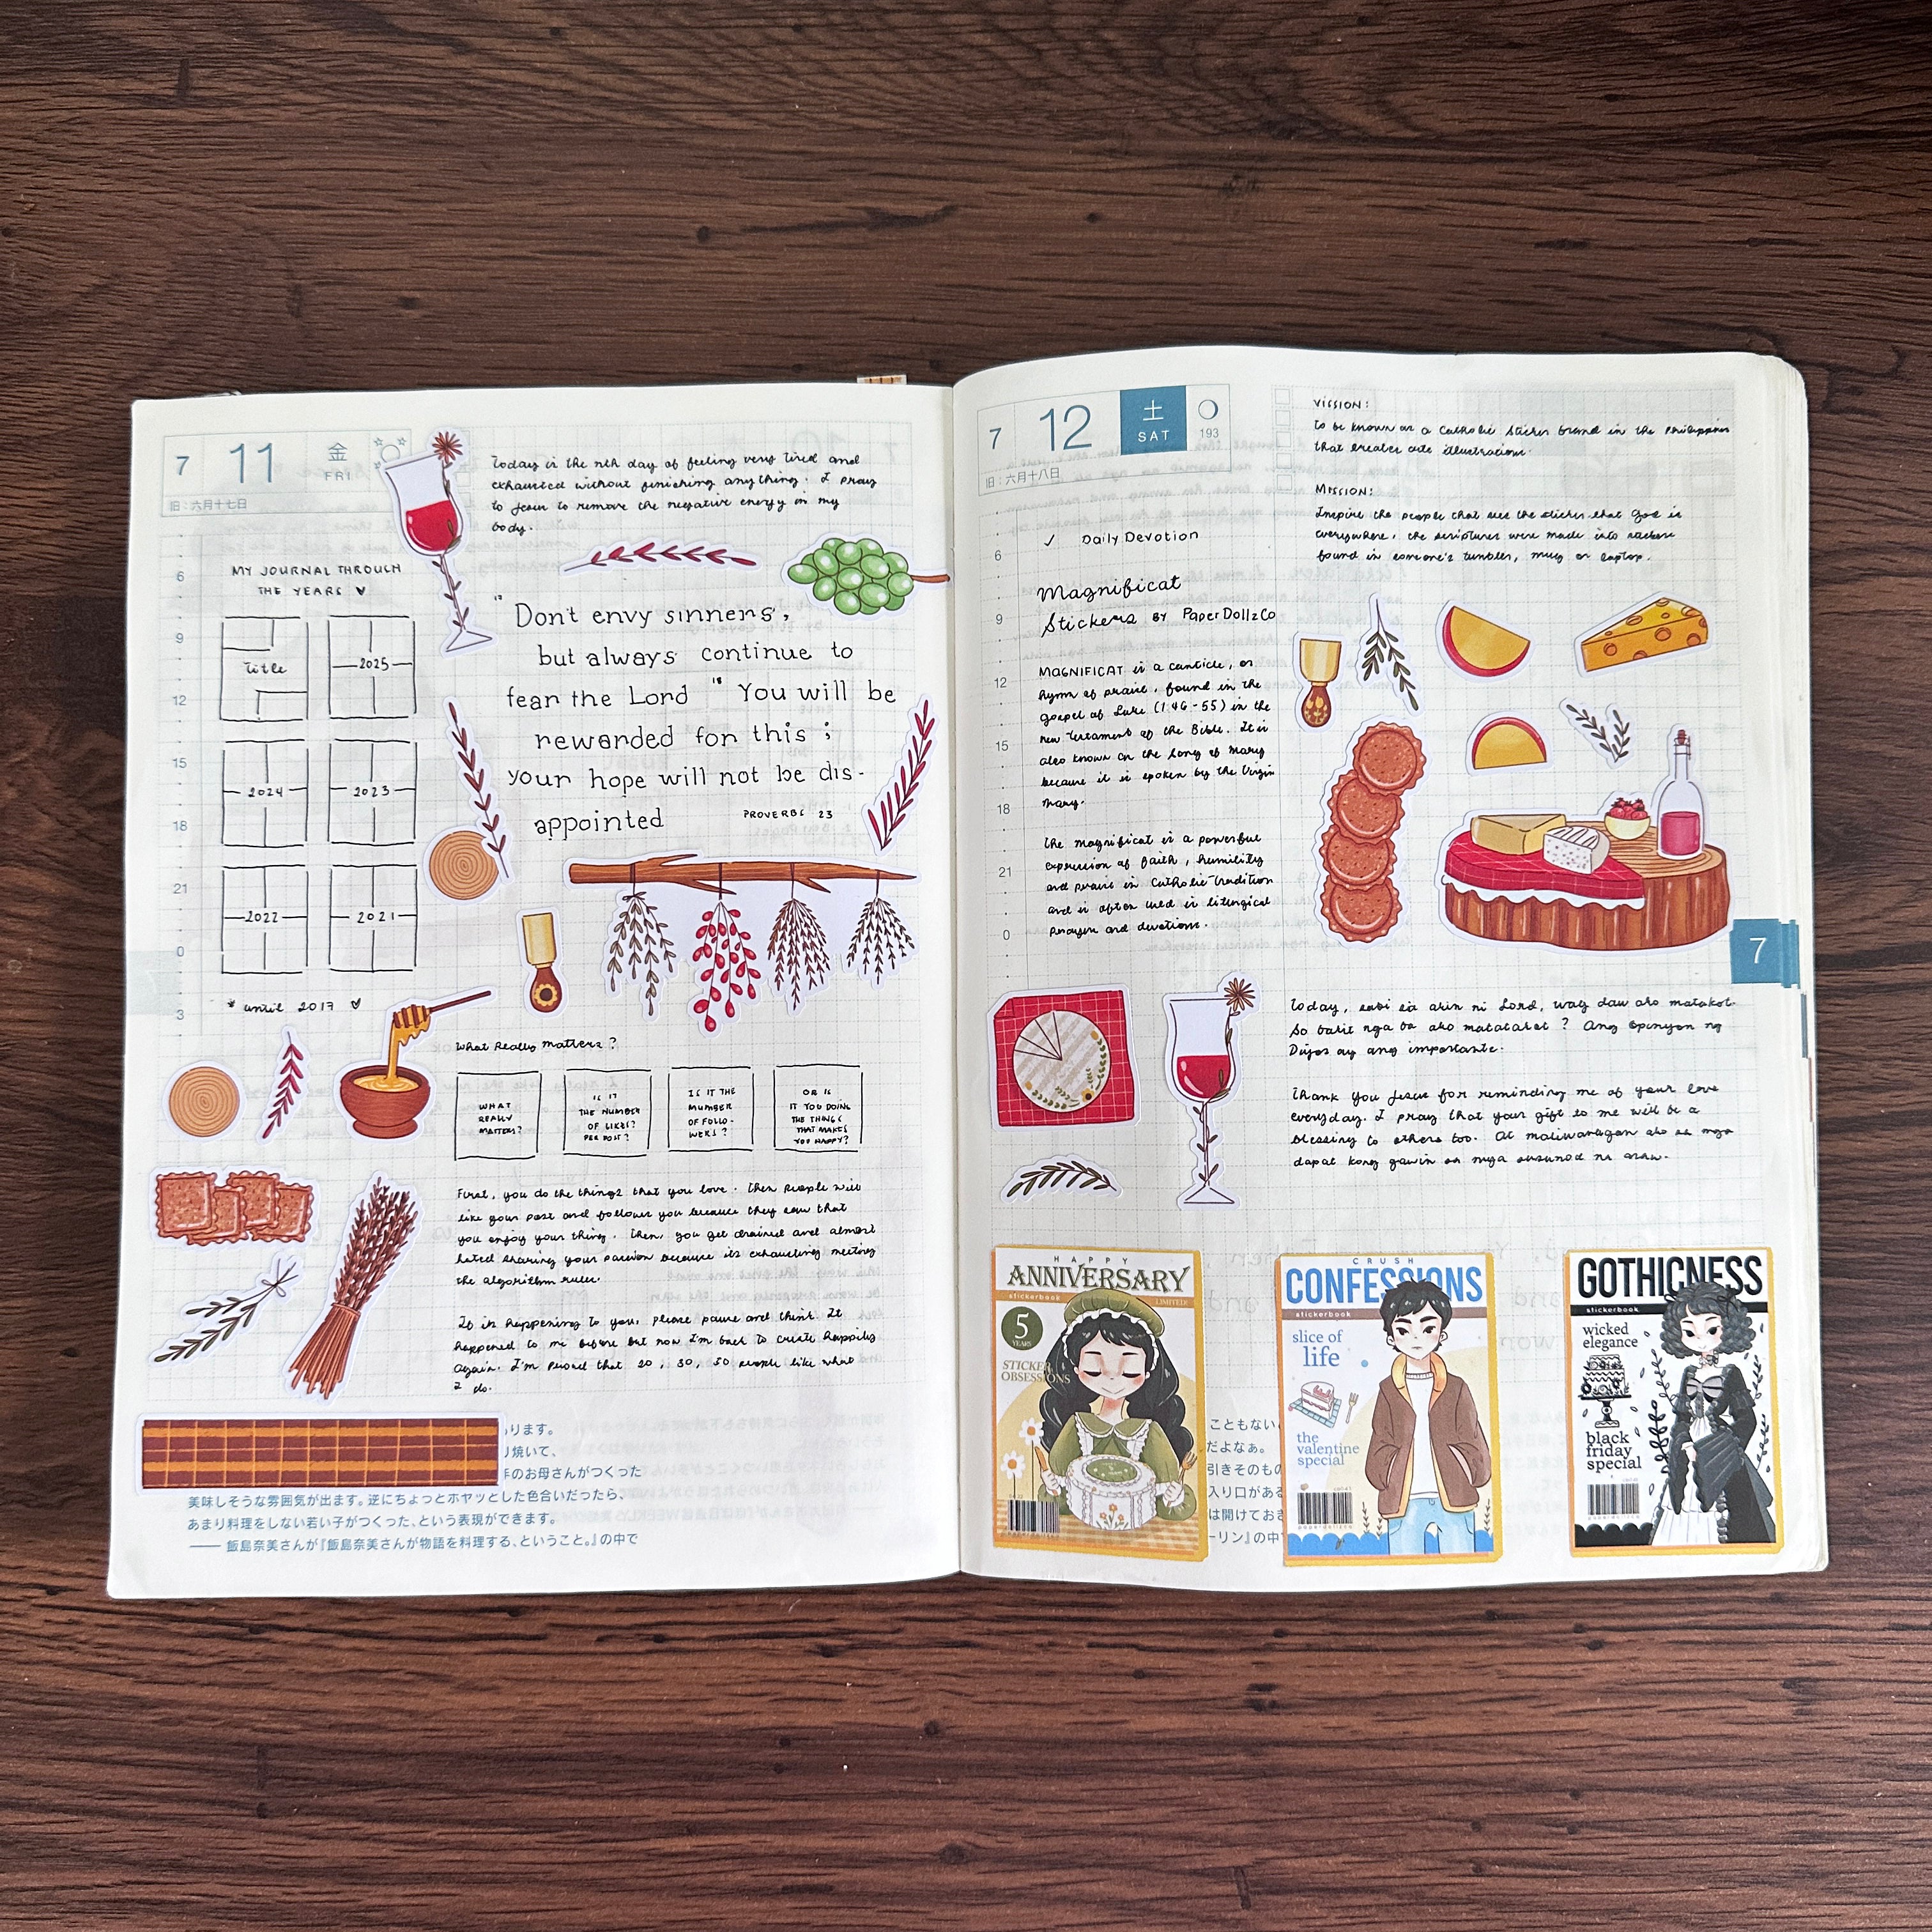 7 11 金 FRI
旧:六月十七日
Today is the nth day of feeling very tired and
exhausted without finishing anything. I pray
to Jesus to remove the negative energy in my
body.
MY JOURNAL THROUGH
THE YEARS
Title
2025
2024
2023
2022
2021
* until 2017
6
9
12
15
18
21
0
3
"Don't envy sinners,
but always continue to
fear the Lord 18 You will be
rewarded for this ;
your hope will not be dis-
appointed PROVERBS 23
What Really matters?
WHAT
REALLY
MATTERS?
IS IT
THE NUMBER
OF LIKES?
PER POST?
IS IT THE
NUMBER
OF FOLLO-
WERS?
OR IS
IT YOU DOING
THE THINGS
THAT MAKES
YOU HAPPY?
First, you do the things that you love. Then people will
like your post and follower you because they saw that
you enjoy your thing. Then, you get drained and almost
hated sharing your passion because its exhausting meeting
the algorithm rules.
If is happening to you, please pause and think. It
happened to me before but now I'm back to create happily
again. I'm proud that 20, 30, 50 people like what
I do.
ります。
り焼いて、
年のお母さんがつくった
美味しそうな雰囲気が出ます。逆にちょっとホヤッとした色合いだったら、
あまり料理をしない若い子がつくった、という表現ができます。
—— 飯島奈美さんが『飯島奈美さんが物語を料理する、ということ。』の中で
7 12 土 SAT 193
旧:六月十八日
VISSION:
To be known as a Catholic Sticker brand in the Philippines
that creates cute illustrations.
MISSION:
Inspire the people that see the sticker that God is
everywhere, the scriptures were made into stickers
found in someone's tumbler, mug or laptop.
✓ Daily Devotion
Magnificat
Stickers BY PaperDollzCo
6
9
12
15
18
21
0
MAGNIFICAT is a canticle, or
hymn of praise, found in the
Gospel of Luke (1:46-55) in the
new Testament of the Bible. It is
also known as the Song of Mary
because it is spoken by the Virgin
Mary.
The magnificat is a powerful
expression of faith, humility
and praise in Catholic Tradition
and is often used in liturgical
prayers and devotions.
7
Today, sabi sa akin ni Lord, wag daw ako matakot.
So bakit nga ba ako matatakot? Ang Opinyon ng
Diyos ay ang importante.
Thank you Jesus for reminding me of your love
everyday. I pray that your gift to me will be a
blessing to others too. At maliwanagan ako sa mga
dapat kong gawin sa mga susunod na araw.
HAPPY
ANNIVERSARY
stickerbook LIMITED
5
YEARS
STICKER
OBSESSIONS
CRUSH
CONFESSIONS
stickerbook
slice of
life
the
valentine
special
GOTHICNESS
stickerbook
wicked
elegance
black
friday
special
こともない
だよなぁ。
引きそのもの
入り口がある
は開けておき
ーリン』の中